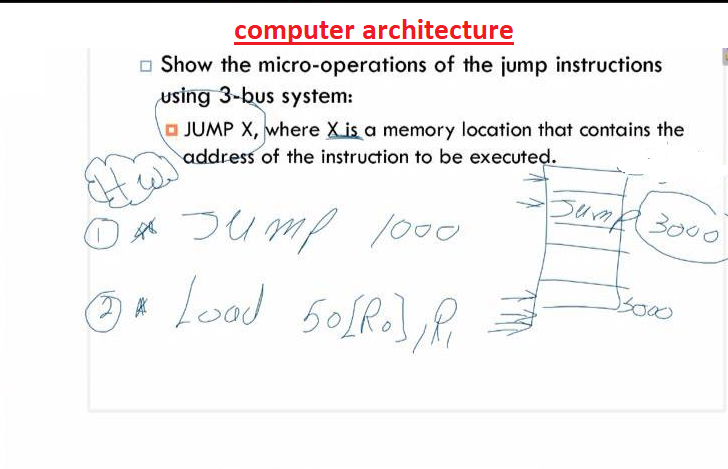 computer architecture
□ Show the micro-operations of the jump instructions
using 3-bus system:
JUMP X, where X is a memory location that contains the
address of the instruction to be executed.
H.W
Jump 3000
① * JUMP 1000
② * Load 50[R0], R1
3000